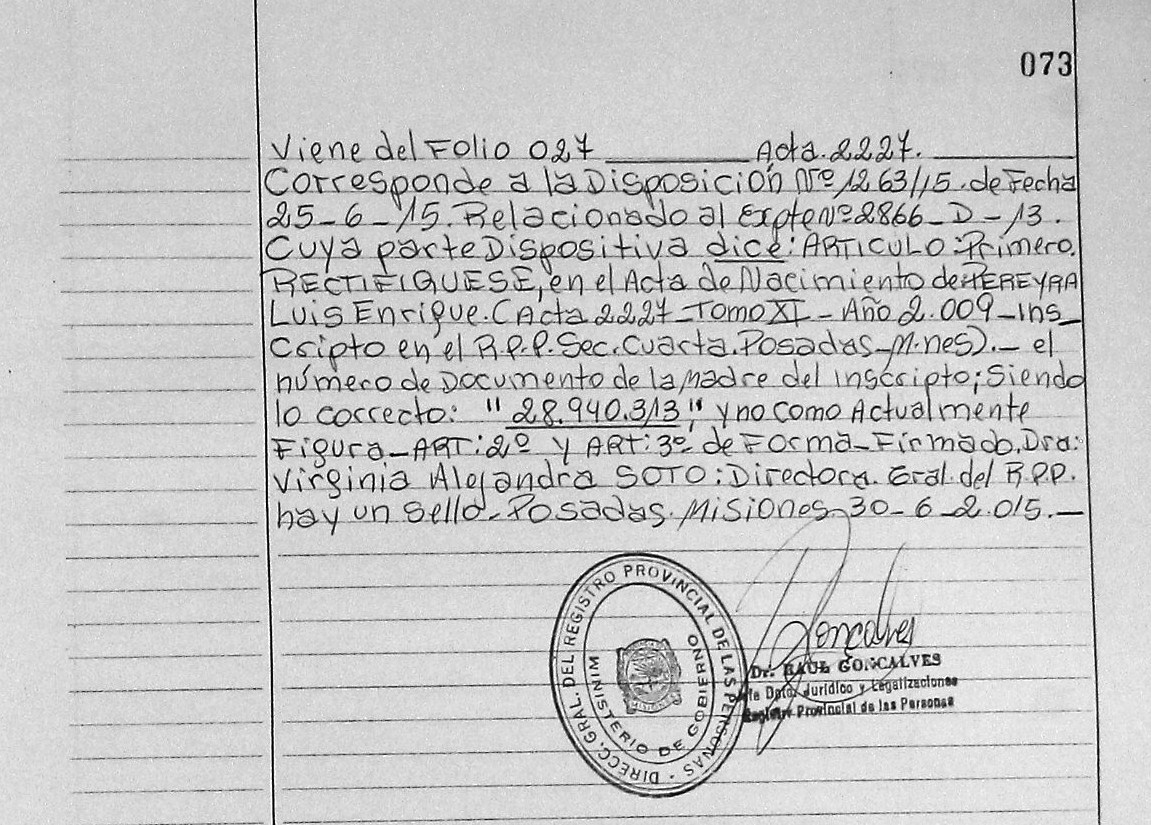 073
Viene del Folio 027 Acta. 2227.
Corresponde a la Disposición Nº 1263/15. de Fecha
25-6-15. Relacionado al Expte Nº 2866-D-13.
Cuya parte Dispositiva dice: ARTICULO: Primero.
RECTIFIQUESE, en el Acta de Nacimiento de: PEREYRA
Luis Enrique. (Acta 2227 - Tomo XI - Año 2.009 - Ins_
cripto en el R.P.P. Sec. Cuarta. Posadas - M.nes). - el
número de Documento de la Madre del inscripto; Siendo
lo correcto: "28.940.313", y no como Actualmente
Figura - ART: 2º y ART: 3º de Forma - Firmado. Dra:
Virginia Alejandra SOTO: Directora. Gral. del R.P.P.
hay un Sello - Posadas. Misiones 30-6-2.015. -
DIRECC. GRAL. DEL REGISTRO PROVINCIAL DE LAS PERSONAS
MINISTERIO DE GOBIERNO
MISIONES
Goncalves
Dr. RAUL GONCALVES
Jefe Dpto. Jurídico y Legalizaciones
Registro Provincial de las Personas